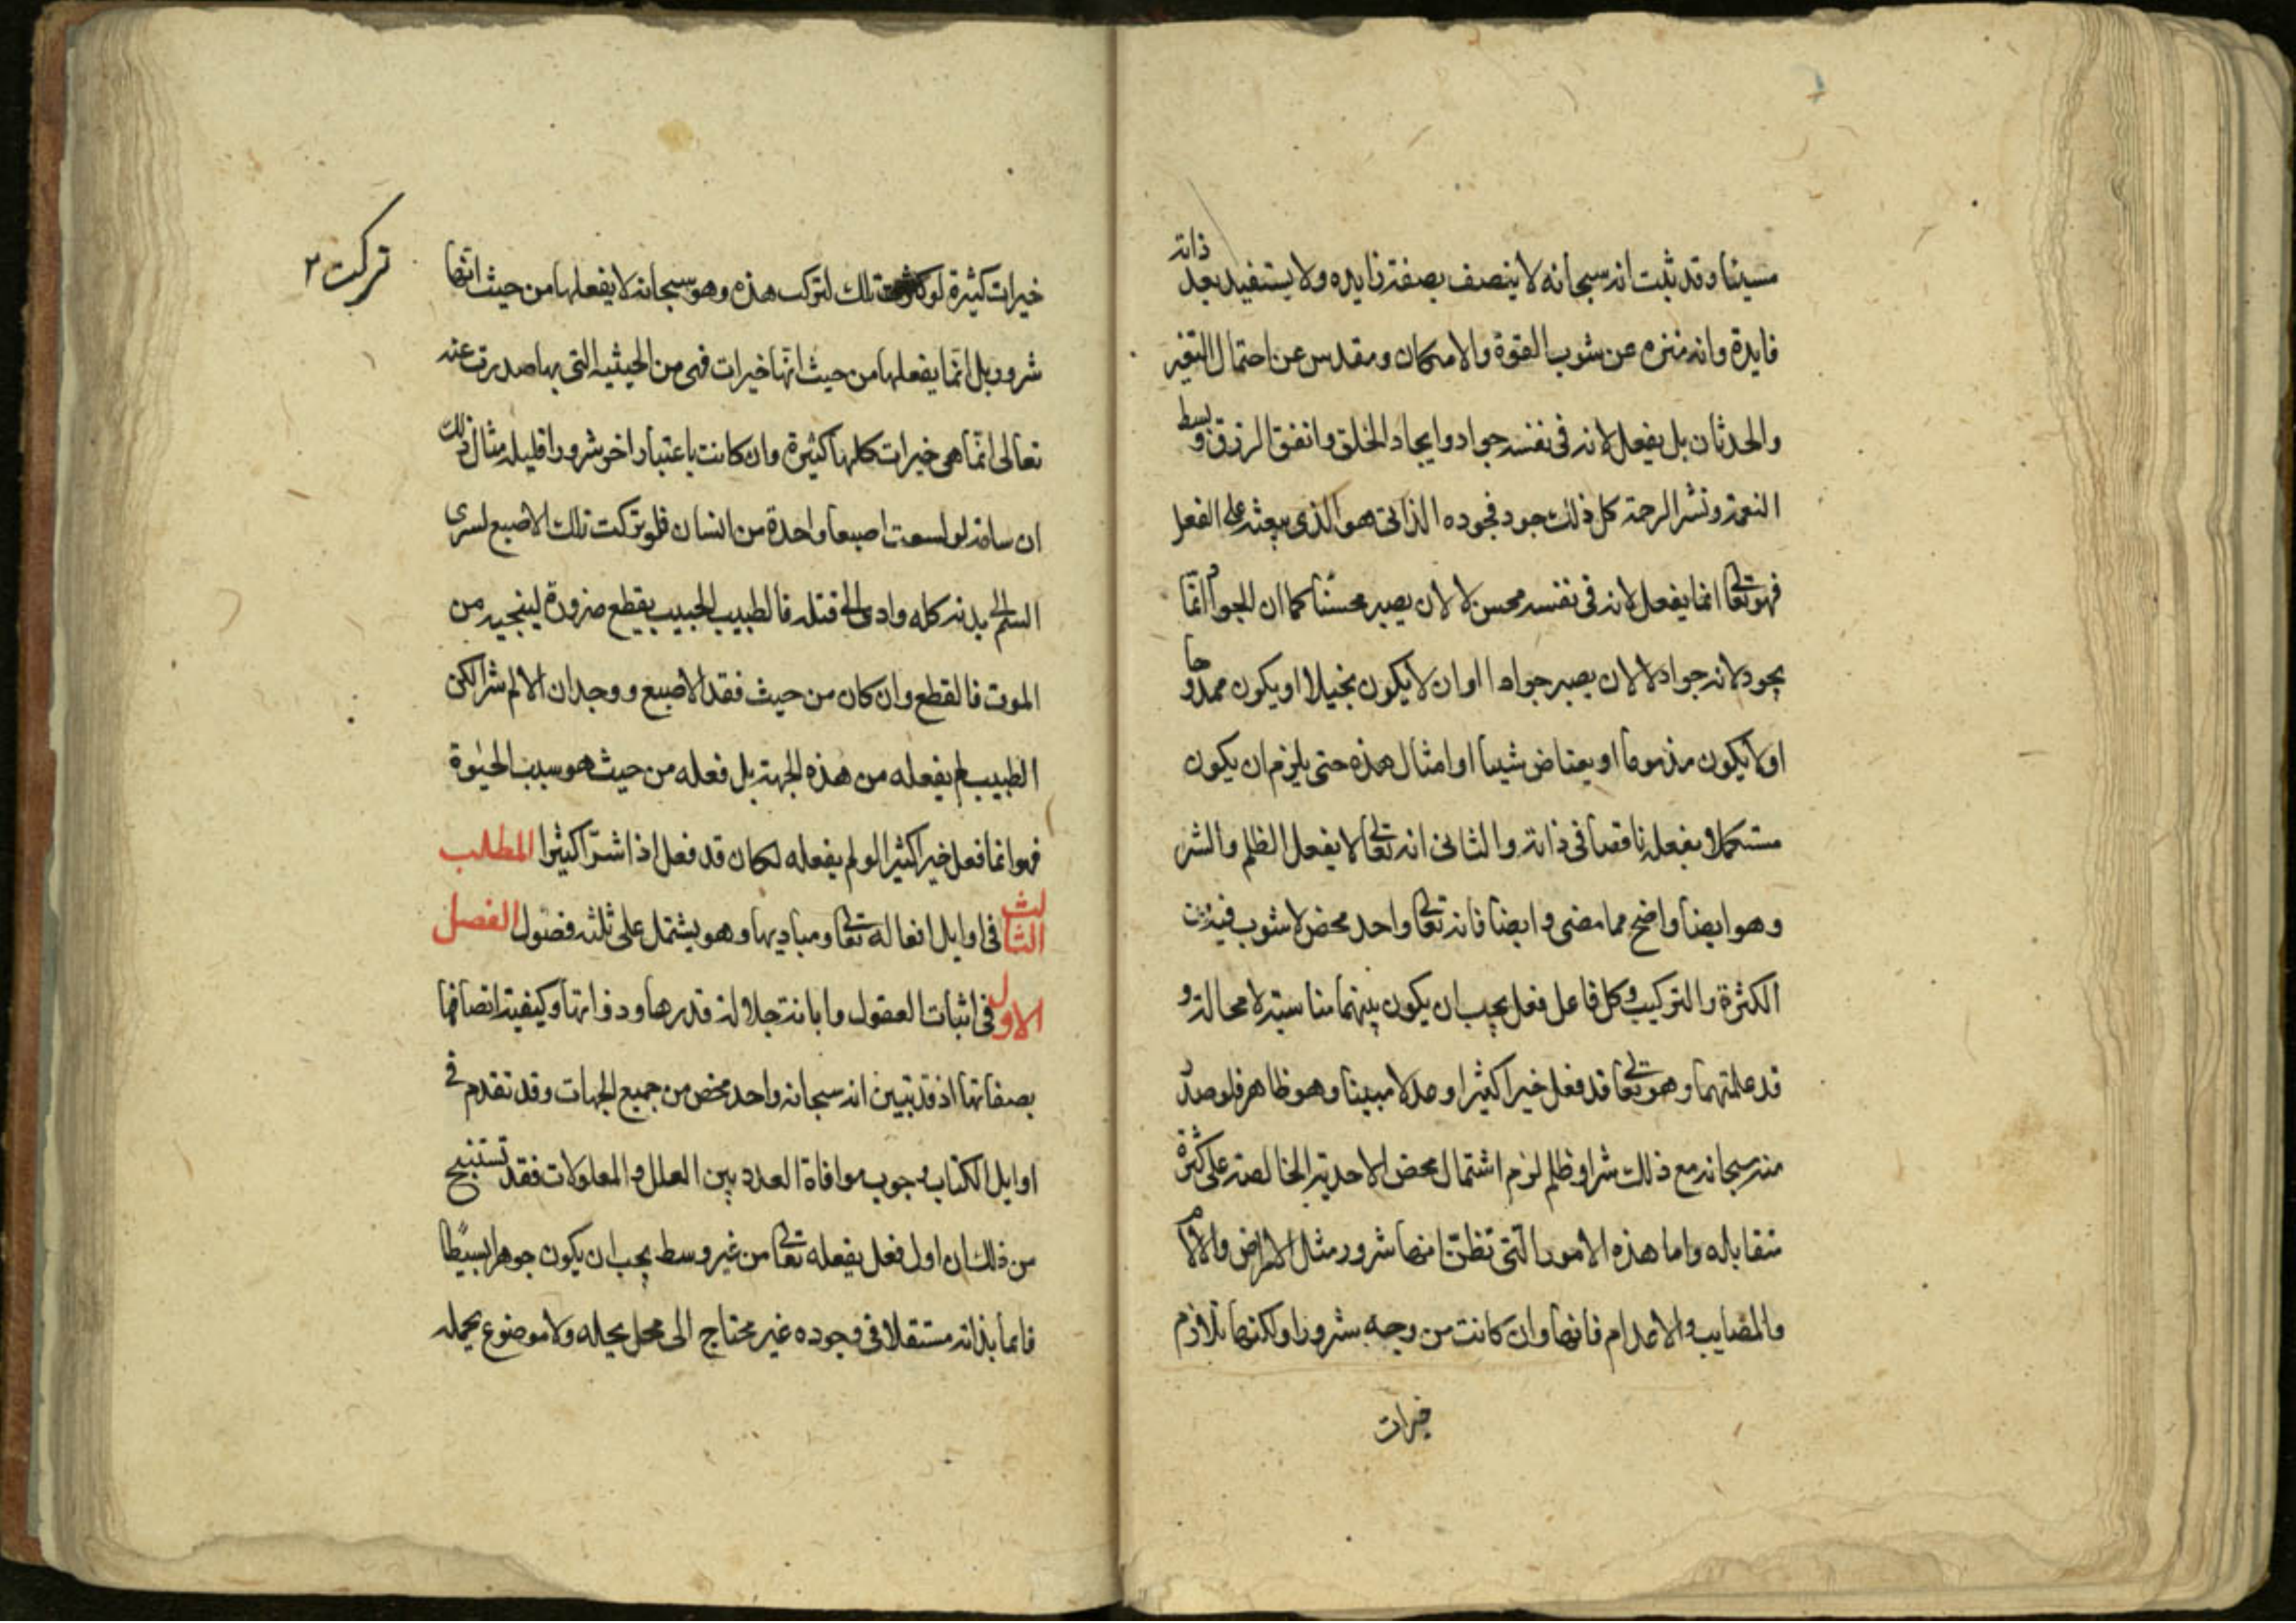 مسيئا وقد ثبت انه سبحانه لا يتصف بصفة زايده ولا يستفيد بعد ذاته
فايدة وانه منزه عن شوب القوة والامكان ومقدس عن احتمال التغير
والحدثان بل يفعل لانه فى نفسه جواد وايجاد الخلق وانفق الرزق وبسط
النعمة ونشر الرحمة كل ذلك جود فجوده الذاتى هو الذى يبعثه على الفعل
فهو تعا انما يفعل لانه فى نفسه محسن لا لان يصير محسنا كما ان الجواد انما
يجود لانه جواد لا لان يصير جوادا او ان لا يكون بخيلا او يكون ممدوحا
او لا يكون مذموما او يعتاض شيئا او امثال هذه حتى يلزم ان يكون
مستكملا بفعله ناقصا فى ذاته والثانى انه تعا لا يفعل الظلم والشر
وهو ايضا واضح مما مضى وايضا فانه تعا واحد محض لا شوب فيه من
الكثرة والتركيب وكل فاعل فعل يجب ان يكون بينهما مناسبة لا محالة و
قد علمتهما وهو تعا قد فعل خيرا كثيرا وعدلا مبينا وهو ظاهر فلو صدر
منه سبحانه مع ذلك شر او ظلم لزم اشتمال محض الاحدية الخالصة على كثرة
متقابله واما هذه الامور التى تظن انها شرور مثل الامراض والالام
والمصايب والاعدام فانها وان كانت من وجه بشرورا ولكنها تلازم
خيرات
خيرات كثيرة لو تلك لتركت هذه وهو سبحانه لا يفعلها من حيث انها
تركت ٢
شرور بل انما يفعلها من حيث انها خيرات فهى من الحيثيه التى بها صدرت عنه
تعالى انما هى خيرات كلها كثيرة وان كانت باعتبار اخر شرورا قليله مثال ذلك
ان سامة لو لسعت اصبعا واحدة من انسان فلو تركت تلك الاصبع لسرى
السم الى بدنه كله وادى الى قتله فالطبيب الحبيب يقطع ضرورة لينجيه من
الموت فالقطع وان كان من حيث فقد الاصبع ووجدان الالم شرا لكن
الطبيب لم يفعله من هذه الجهة بل فعله من حيث هو سبب الحيوة
فهو انما فعل خيرا كثيرا لو لم يفعله لكان قد فعل اذا شرا كثيرا المطلب
الثالث فى اوايل افعاله تعا ومباديها وهو يشتمل على ثلثه فصول الفصل
الاول فى اثبات العقول وابانة جلالة قدرها وذواتها وكيفية اتصافها
بصفاتها اذ قد تبين انه سبحانه واحد محض من جميع الجهات وقد تقدم فى
اوايل الكتاب وجوب موافاة العدد بين العلل والمعلولات فقد تستنتج
من ذلك ان اول فعل يفعله تعا من غير وسط يجب ان يكون جوهرا بسيطا
قايما بذاته مستقلا فى وجوده غير محتاج الى محل يحله ولا موضوع يحمله